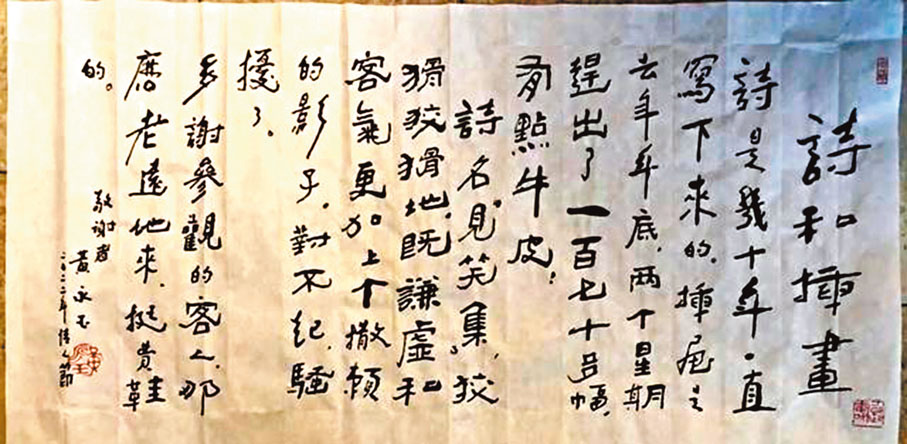 詩和插畫
詩是幾十年一直
寫下來的,插尾是
去年年底,两个星期
趕出了一百七十多幅,
有點牛皮;
詩名《見笑集》,狡
猾狡猾地,既謙虛和
客氣更加上个撒賴
的影子。對不起,騷
擾了。
多謝參觀的客人,那
麽老遠地來,挺費鞋
的。
敬谢者
黄永玉
二〇二二年情人節